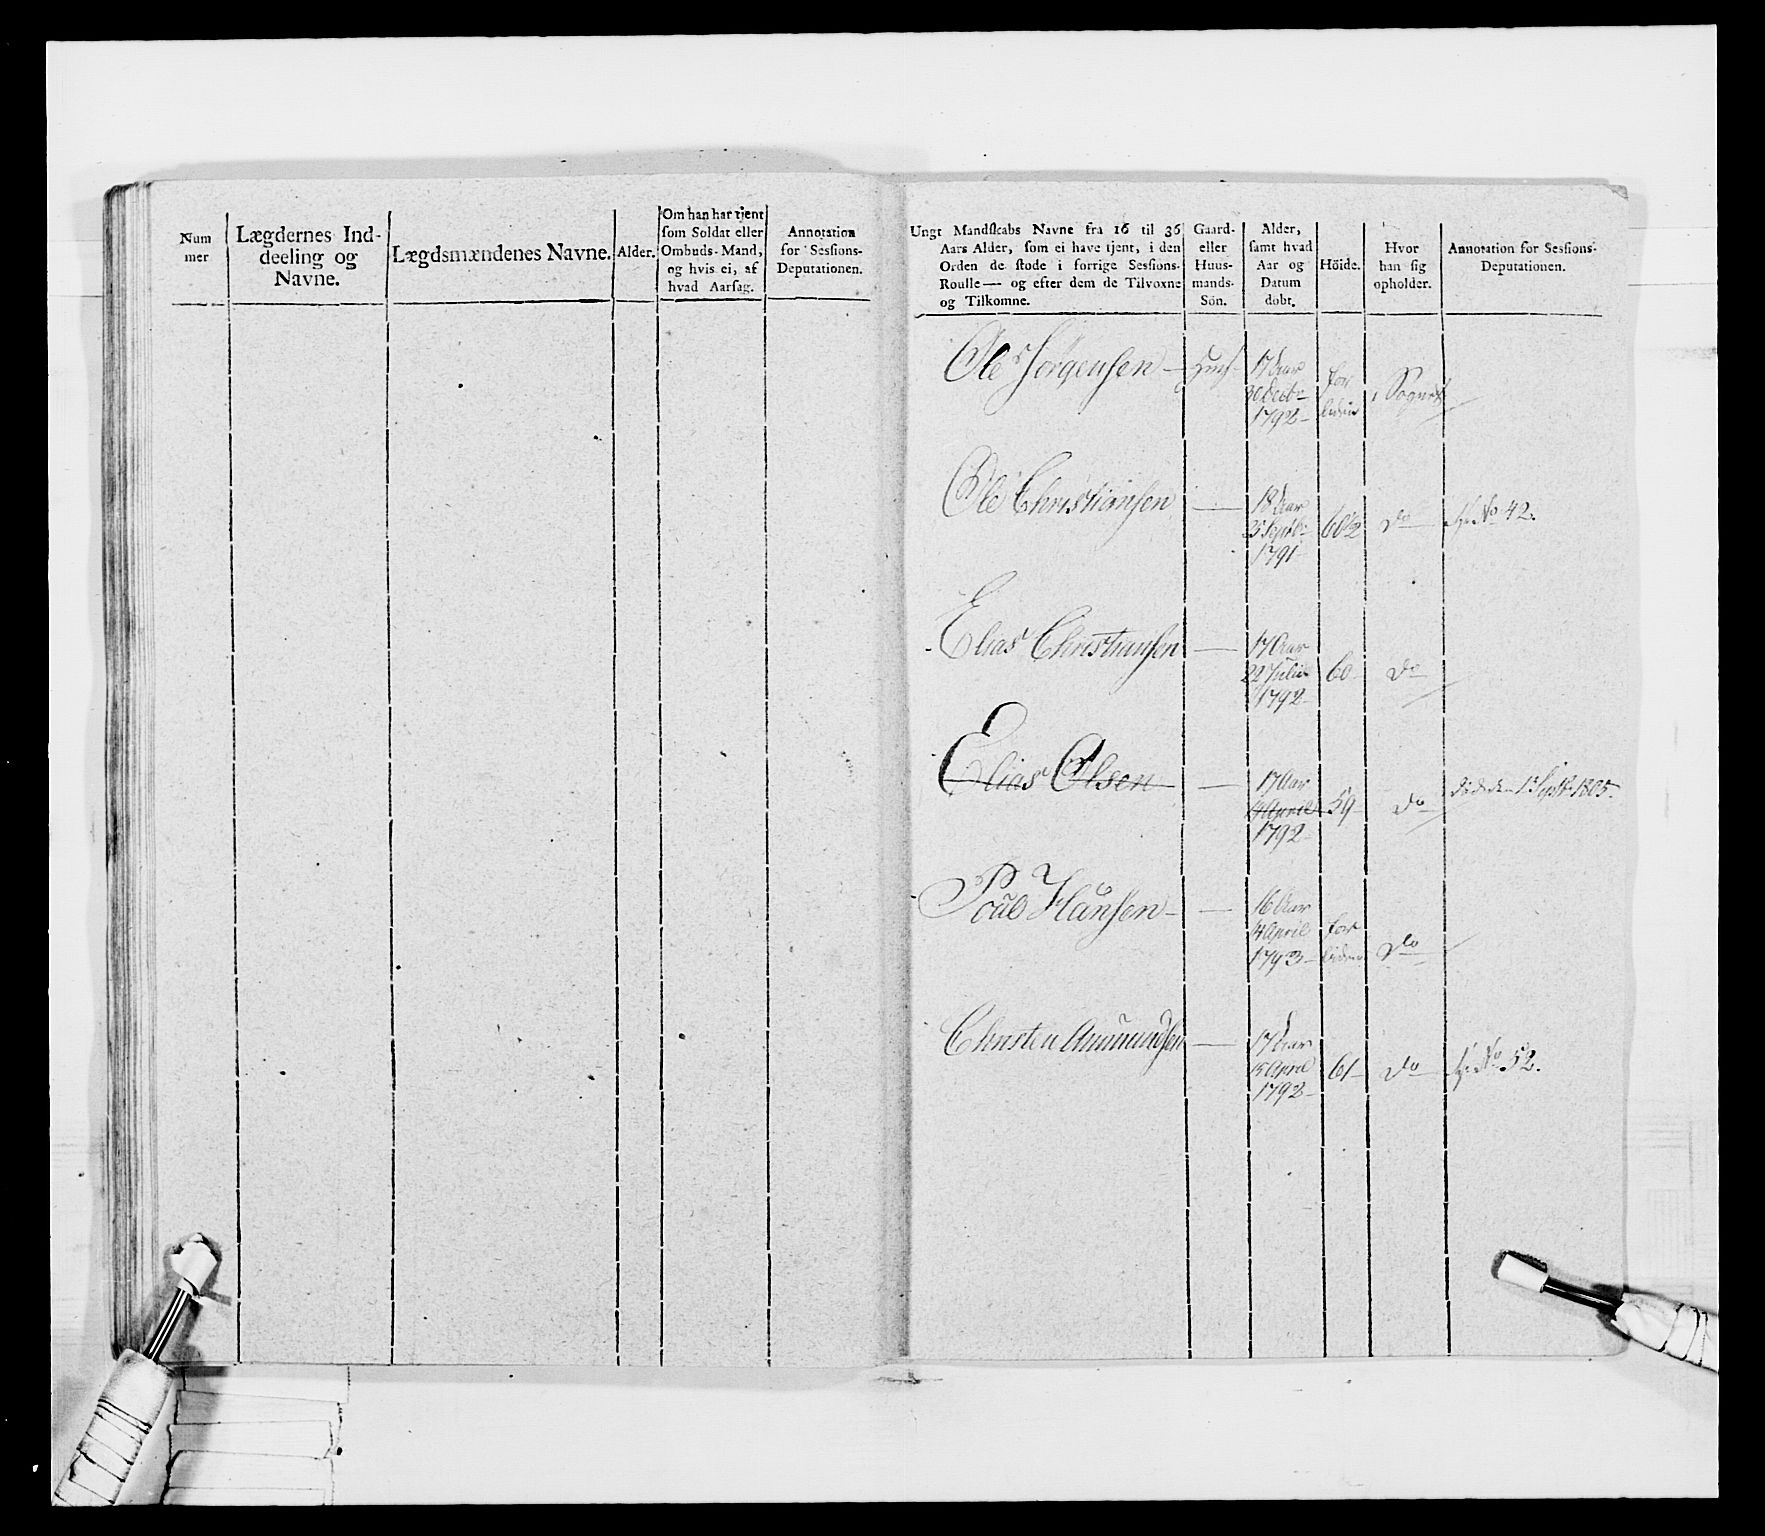 Num
mer
Lægdernes Ind-
deeling og
Navne.
Lægdsmændenes Navne.
Alder.
Om han har tjent
som Soldat eller
Ombuds-Mand,
og hvis ei, af
hvad Aarsag.
Annotation
for Sessions-
Deputationen.
Ungt Mandskabs Navne fra 16 til 36
Aars Alder, som ei have tjent, i den
Orden de stode i forrige Sessions-
Roulle — og efter dem de Tilvoxne
og Tilkomne.
Gaard-
eller
Huus-
mands-
Sön.
Alder,
samt hvad
Aar og
Datum
döbt.
Höide.
Hvor
han sig
opholder.
Annotation for Sessions-
Deputationen.
Ole Jörgensen — 17 Aar
1792 i Sognet
Ole Christiansen — 18 Aar
25 Septbr 60½ do No 42.
1791
Elias Christiansen — 17 Aar
22 Julii 60 do
1792
Elias Olsen — 17 Aar
April 59 do död den 13 Septbr 1805.
1792
Poul Hansen — 16 Aar
4 April
1793 do
Christen Amundsen — 17 Aar
15 April 61 do No 52.
1792